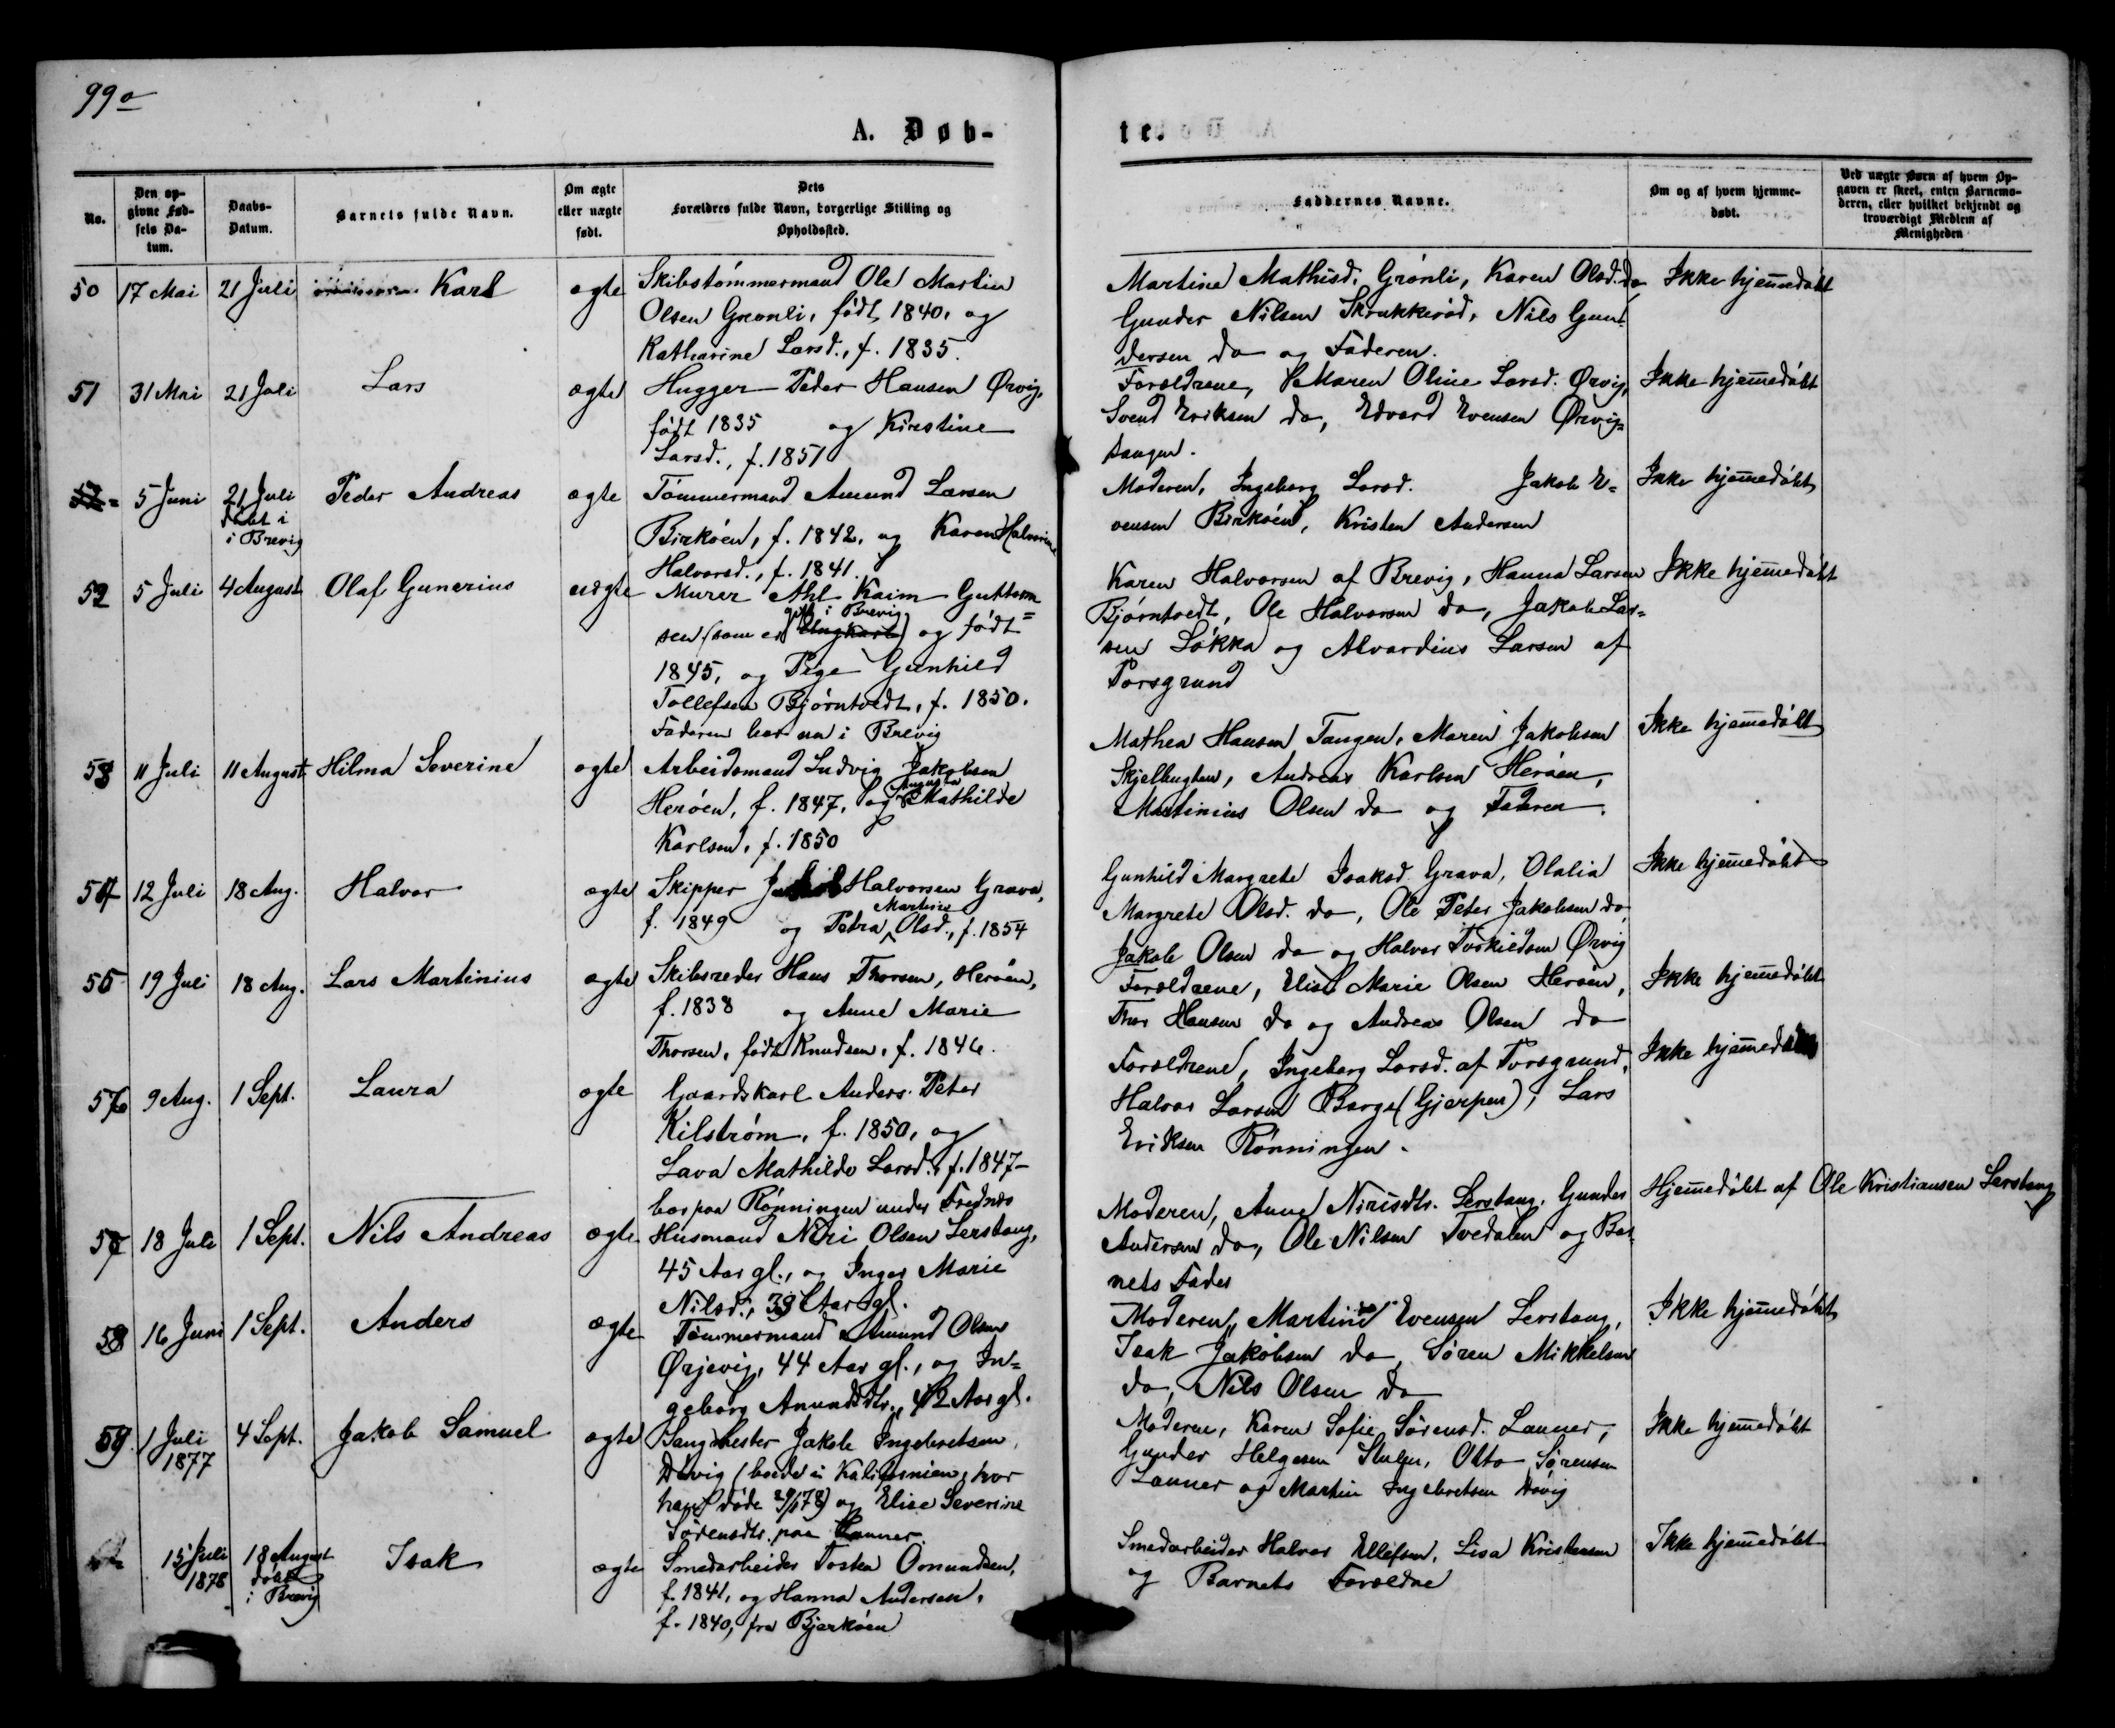 99a
A. Døb-
te.
No.
Den op-
givne Fød-
sels Da-
tum.
Daabs-
Datum.
Barnets fulde Navn.
Om ægte
eller uægte
født.
Dets
Forældres fulde Navn, borgerlige Stilling og
Opholdssted.
Faddernes Navne.
Om og af hvem hjemme-
døbt.
Ved uægte Børn af hvem Op-
gaven er skeet, enten Barnemo-
deren, eller hvilket bekjendt og
troværdigt Medlem af
Menigheden
50 17 Mai 21 Juli Karl ægte Skibstømmermand Ole Martin
Olsen Grønli, født 1840, og
Katharine Larsd., f. 1835.
Martine Mathisd. Grønli, Karen Olsd. do
Gunder Nilsen Skrukkerød, Nils Gun-
dersen do og Faderen.
Ikke hjemmedøbt
51 31 Mai 21 Juli Lars ægte Hugger Peder Hansen Ørvig,
født 1835 og Kirstine
Larsd., f. 1851
Forældrene, Maren Oline Larsd. Ørvig,
Svend Eriksen do, Edvard Evensen Ørvig-
tangen.
Ikke hjemmedøbt
5 Juni 21 Juli
døbt i
i Brevig
Peder Andreas ægte Tømmermand Amund Larsen
Birkøen, f. 1842, og Karen Halvorine
Halvorsd., f. 1841.
Moderen, Ingeborg Larsd. Jakob E-
vensen Birkøen, Kristen Andersen
Ikke hjemmedøbt
52 5 Juli 4 August Olaf Gunerius uægte Murer Ahl Kaim Guttorm-
sen (som er gift i Brevig Ungkarl) og født
1845, og Pige Gunhild
Tollefsen Bjørntvedt, f. 1850.
Faderen bor nu i Brevig
Karen Halvorsen af Brevig, Hanna Larsen
Bjørntvedt, Ole Halvorsen do, Jakob Lar-
sen Løkka og Alvardius Larsen af
Porsgrund
Ikke hjemmedøbt
53 11 Juli 11 August Hilma Severine ægte Arbeidsmand Ludvig Jakobsen
Herøen, f. 1847, og Augusta Mathilde
Karlsen, f. 1850
Mathea Hansen Tangen, Maren Jakobsen
Skjelbugten, Andreas Karlsen Herøen,
Martinius Olsen do og Faderen.
Ikke hjemmedøbt
54 12 Juli 18 Aug. Halvor ægte Skipper Halvorsen Grava,
f. 1849 og Petra Martine Olsd., f. 1854
Gunhild Margrete Isaksd. Grava, Olalia
Margrete Olsd. do, Ole Peter Jakobsen do
Jakob Olsen do og Halvor Torkildsen Ørvig
Ikke hjemmedøbt
55 19 Juli 18 Aug. Lars Martinius ægte Skibsreder Hans Thorsen, Herøen,
f. 1838 og Anne Marie
Thorsen, født Knudsen, f. 1846.
Forældrene, Elise Marie Olsen Herøen,
Thor Hansen do og Andreas Olsen do
Ikke hjemmedøbt
56 9 Aug. 1 Sept. Laura ægte Gaardskarl Anders Peter
Kilstrøm, f. 1850, og
Lava Mathilde Larsd., f. 1847-
bor paa Rønningen under Frednæs
Forældrene, Ingeborg Larsd. af Porsgrund,
Halvor Larsen Borge (Gjerpen), Lars
Eriksen Rønningen.
Ikke hjemmedøbt
57 18 Juli 1 Sept. Nils Andreas ægte Husmand Niri Olsen Lerstang,
45 Aar gl., og Inger Marie
Nilsd., 39 Aar gl.
Moderen, Anne Nirisdtr. Lerstang, Gunder
Andersen do, Ole Nilsen Tvedalen og Bar-
nets Fader
Hjemmedøbt af Ole Kristiansen Lerstang
58 16 Juni 1 Sept. Anders ægte Tømmermand Amund Olsen
Ørjevig, 44 Aar gl., og In-
geborg Amundsdtr., 42 Aar gl.
Moderen, Martine Evensen Lerstang,
Isak Jakobsen do, Søren Mikkelsen
do, Nils Olsen do
Ikke hjemmedøbt
59 1 Juli
1877
4 Sept. Jakob Samuel ægte Jakob Ingebretsen
Døvig (boede i Kalifornien, hvor
han døde 29/1 78) og Elise Severine
Sørensdtr. paa Lanner.
Moderen, Karen Sofie Sørensd. Lanner,
Gunder Helgesen Stulen, Otto Sørensen
Lanner og Martin Ingebretsen Døvig
Ikke hjemmedøbt
15 Juli
1878
18 August
døbt
i Brevig
Isak ægte Smedarbeider Tosten Omundsen,
f. 1841, og Hanna Andersen,
f. 1840, fra Bjerkøen
Smedarbeider Halvor Ellefsen, Lisa Kristensen
og Barnets Forældre
Ikke hjemmedøbt